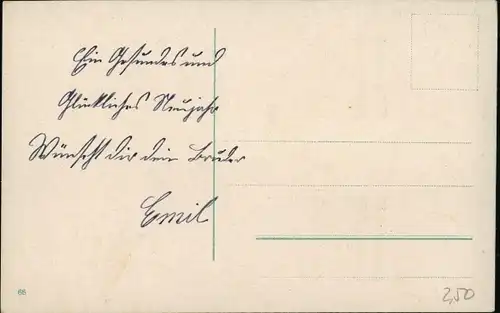 Ein Gesundes und
Glückliches Neujahr
Wünscht dir dein Bruder
Emil
66
2,50